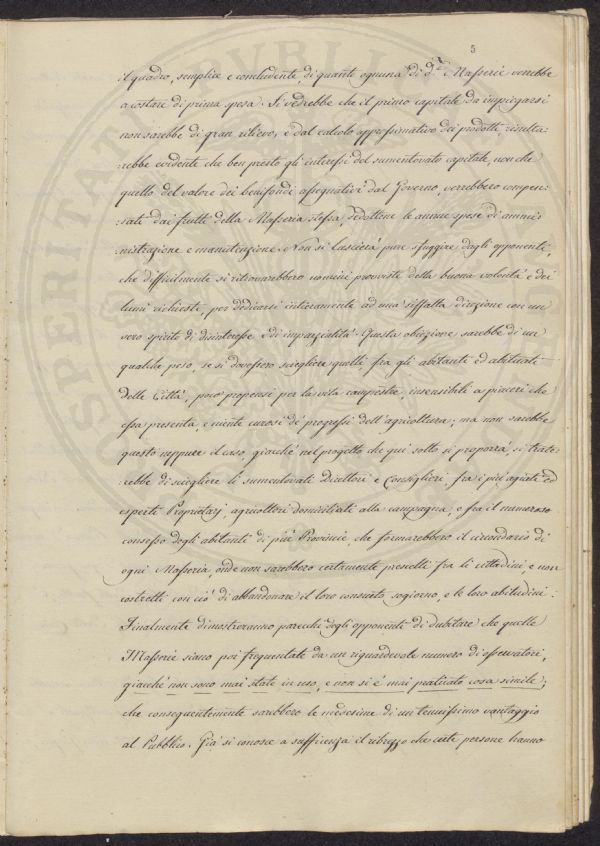 5
il quadro, semplice e concludente, di quanto ognuna di d.e Masserie verrebbe
a costare di prima spesa. Si vedrebbe che il primo capitale da impiegarsi
non sarebbe di gran rilievo, e dal calcolo approssimativo dei prodotti, risulta:
:rebbe evidente che ben presto gli interessi del sumentovato capitale, non che
quello del valore dei benifondi assegnativi dal Governo, verrebbero compen:
:sati dai frutti della Masseria stessa, dedottene le annue spese di ammi:
:nistrazione e manutenzione. Non si lascierà pure sfuggire dagli opponenti,
che difficilmente si ritroverebbero uomini provviste della buona volontà e dei
lumi richiesti, per dedicarsi interamente ad una siffatta direzione con un
vero spirito di disinteresse e di imparzialità. Questa obiezione sarebbe di un
qualche peso, se si dovessero scieglere quelli fra gli abitanti ed abituati
delle Città, poco propensi per la vita campestre, insensibili a piaceri che
essa presenta, e niente curosi de' progressi dell'agricoltura; ma non sarebbe
questo neppure il caso, giacchè nel progetto che qui sotto si proporrà si trate:
:rebbe di scieglere li sumentovati Direttori e Consiglieri, fra i più agiati ed
esperti Proprietarj, agricoltori domiciliati alla campagna, e fra il numeroso
consesso degli abitanti di più Provincie, che formerebbero il circondario di
ogni Masseria, onde non sarebbero certamente prescielti fra li cittadini, e non
costretti con ciò di abbandonare il loro consueto sogiorno, e le loro abitudini:
Finalmente dimostreranno parecchi degli opponenti di dubitare che quelle
Masserie siano poi frequentate da un riguardevole numero di osservatori,
giacchè non sono mai state in uso, e non si è mai praticato cosa simile;
che conseguentemente sarebbero le medesime di un tenuissimo vantaggio
al Pubblico. Già si conosce a sufficienza il ribrezzo che certe persone hanno